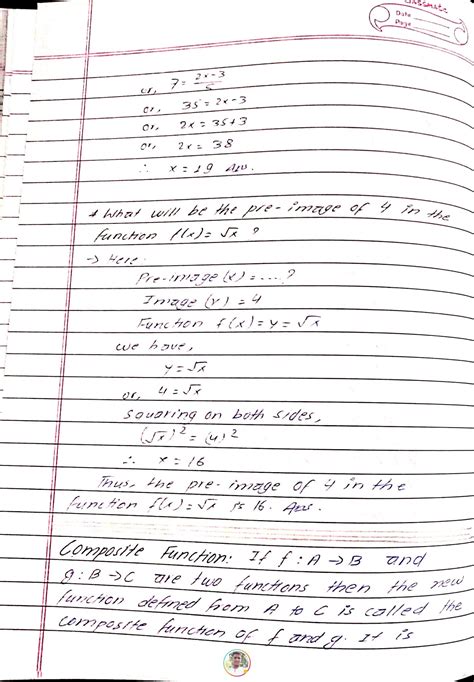 classmate
Date
Page
or, 7 = 2x-3/5
or, 35 = 2x-3
or, 2x = 35+3
or, 2x = 38
∴ x = 19 Ans.
* What will be the pre-image of 4 in the
function f(x) = √x ?
→ Here
Pre-image (x) = ....?
Image (y) = 4
Function f(x) = y = √x
we have,
y = √x
or, 4 = √x
squaring on both sides,
(√x)² = (4)²
∴ x = 16
Thus, the pre-image of 4 in the
function f(x) = √x is 16. Ans.
Composite Function: If f : A → B and
g : B → C are two functions then the new
function defined from A to C is called the
composite function of f and g. It is